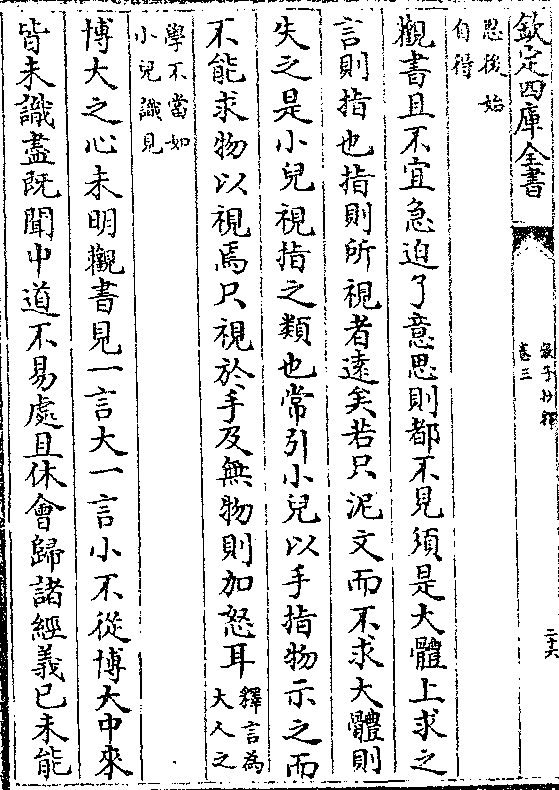 欽定四庫全書
張子抄釋
卷三
二十六
思後始
自得
觀書且不宜急迫了意思則都不見須是大體上求之
言則指也指則所視者遠矣若只泥文而不求大體則
失之是小兒視指之類也常引小兒以手指物示之而
不能求物以視焉只視於手及無物則加怒耳釋言為
大人之
學不當如
小兒識見
博大之心未明觀書見一言大一言小不從博大中來
皆未識盡既聞中道不易處且休會歸諸經義已未能